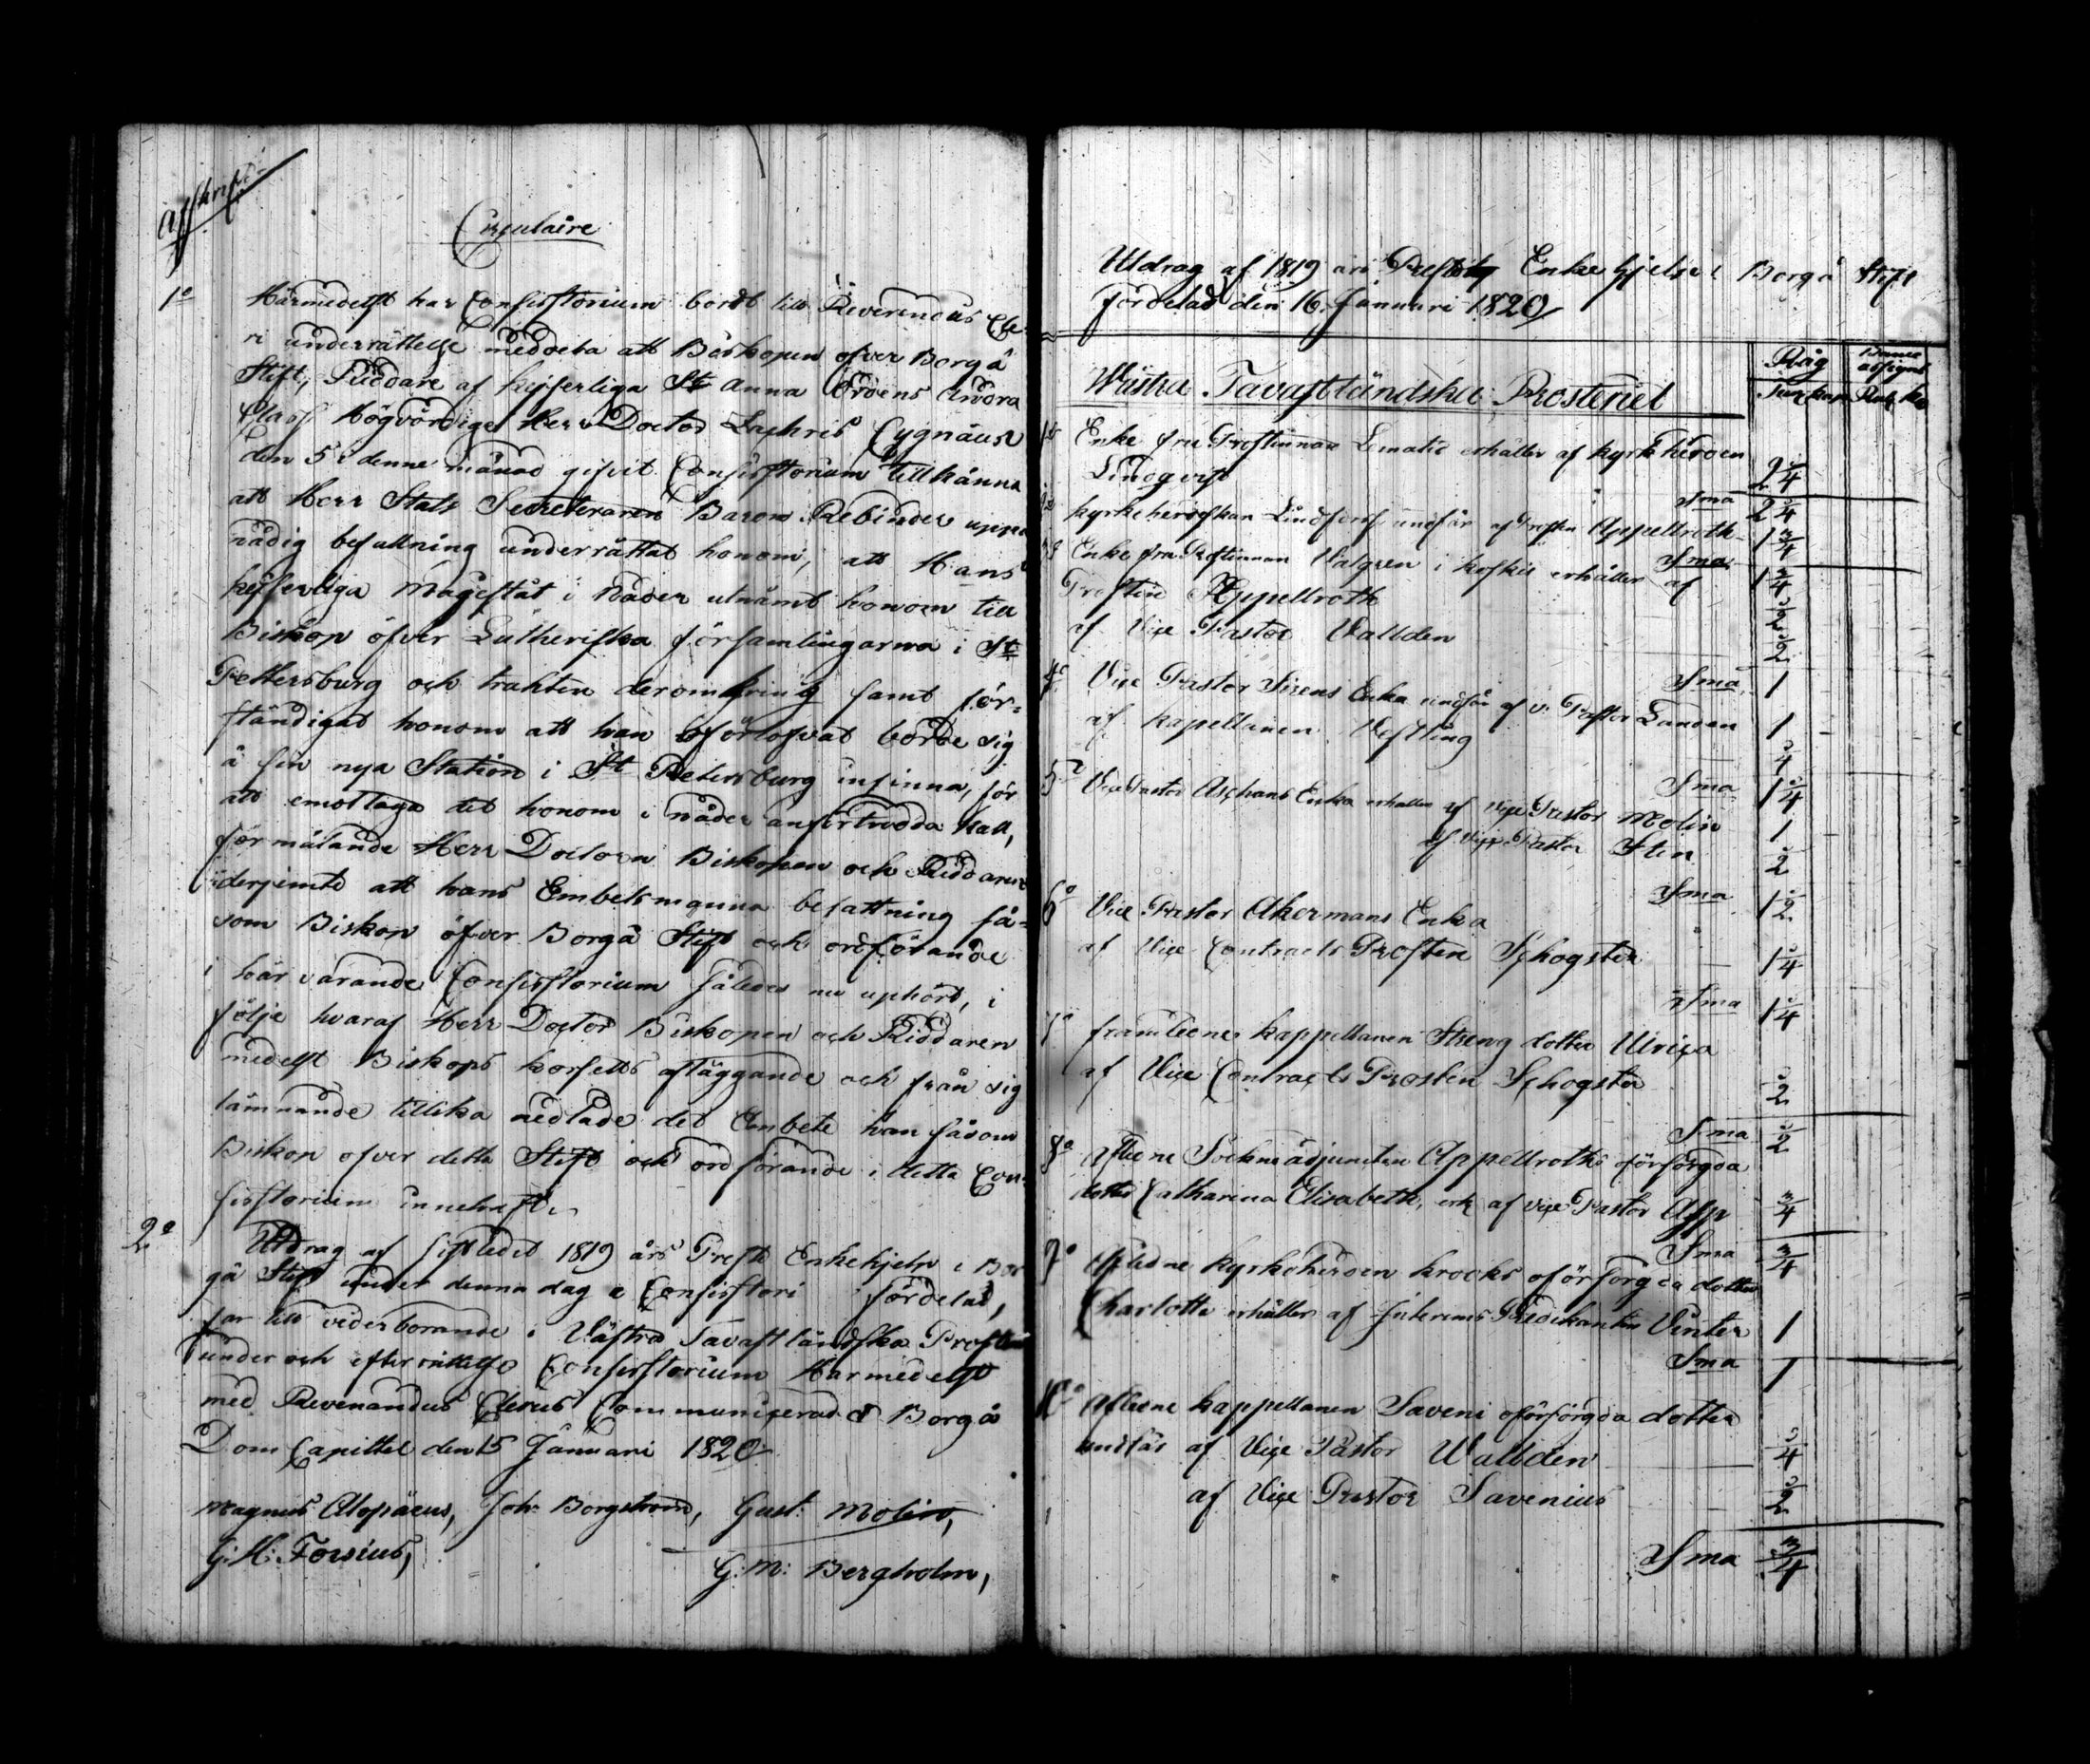 Afskrift
Circulaire
1o Härmedelst har Consistorium bordt till Reverendus Cle-
ri underrättelse meddela att Biskopen öfver Borgå
Stift, Riddare af Kejserliga St Anna Ordens Andra
Class Högvördige Herr Doctor Zachris Cygnäus
den 5 i denne månad gifvit Consistorium tillkänna
att Herr Stats Secreteraren Baron Rebinder uppå
nådig befallning underrättat honom, att Hans
Kejserliga Majestät i Nåder utnämt honom till
Biskop öfver Lutheriska församlingarna i St
Pettersburg och trakten deromkring samt för-
ständigat honom att han oförtofvat borde sig
å sin nya Station i St Petersburg infinna, för
att emottaga det honom i nåder anförtrodda kall,
förmälande Herr Doctorn Biskopen och Riddaren
derjemte att hans Embetsmanna befattning så-
som Biskop öfver Borgå Stift och ordförande
i härvarande Consistorium således nu uphört, i
följe hvaraf Herr Doctor Biskopen och Riddaren
medelst Biskops korsets afläggande och från sig
lämnande tillika nedlade det Embete han såsom
Biskop öfver detta Stift och ordförande i detta Con-
sistorium innehaft.
2o Utdrag af sistledit 1819 års Prest Enkehjelp i Bor
gå Stift under denna dag a Consistori fördelad,
far till vederborande i Västra Tavastländska Prosteri
under och efterrättelse Consistorium Härmedelst
med Revenandus Clerus Communicerad Borgå
Dom Capittel den 15 Januari 1820
Magnus Alopäeus, Joh: Borgström, Gust: Molin,
G: H: Forsius,
G: M: Bergholm,
Utdrag af 1819 års Enke hjelpe i Borgå Stift
fördelad den 16 Januari 1820
Råg
Wästra Tavastländska Prosteriet
Enke fru Prostinnan erhåller af Kyrkherden
Lindqvist 2 1/4
Sma 2 1/4
Kyrkoherdskan Lindfors undfår af Prosten Appellroth 1 3/4
Sma 1 3/4
Enke fru Prostinnan Valgren i Koskis erhåller af
Prosten Appellroth 1/2
af Vice Pastor Vallden 1/2
Sma 1
4o Vice Pastor Sirens Enka undfår af v. Pastor Landen 1
af Kapellanen Vestling 1/4
Sma 1 1/4
5o Vice Pastor Aschans Enka erhaller af Vice Pastor Molin 1
af Vice Pastor Sten 1/2
Sma 1 1/2
6o Vice Pastor Akermans Enka
af Vice Contracts Prosten Schogster 1 1/4
Sma 1 1/4
7o framledne Kappellanen Streng dotter Ulrica
af Vice Contracts Prosten Schogster 1/2
Sma 1/2
8o Aflidne Sockneadjuncten Appellroths oförsörgda
dotter Catharina Elisabeth, erh af Vice Pastor Asp 3/4
Sma 3/4
9o Aflidne Kyrkoherden Krooks oförsörgda dotter
Charlotta erhåller af Interims Predikanten Vinter 1
Sma 1
10o Aflidne Kappellanen Saveni oförsörgda dotter
undfår af Vice Pastor Wallden 1/4
af Vice Pastor Savenius 1/2
Sma 3/4